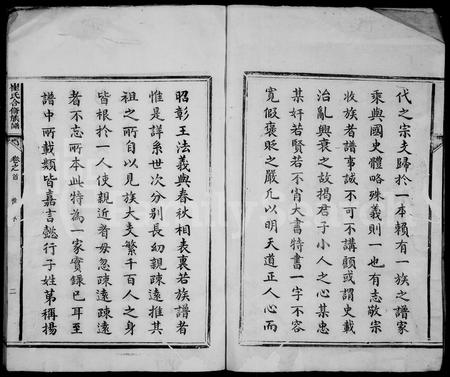 代之宗支歸於一本賴有一族之譜家
乘與國史體略殊義則一也有志敬宗
收族者譜事誠不可不講顧或謂史載
治亂興衰之故揭君子小人之心某忠
某奸若賢若不肖大書特書一字不容
寬假褒貶之嚴凡以明天道正人心而
昭彰王法義與春秋相表裏若族譜者
惟是詳系世次分別長幼親疎遠推其
祖之所自以見族大支繁千百人之身
皆根於一人使親近者毋忽疎遠疎遠
者不忘所本此特為一家實錄已耳至
譜中所載類皆嘉言懿行子姓第稱揚
崔氏合修族譜
卷之首
二